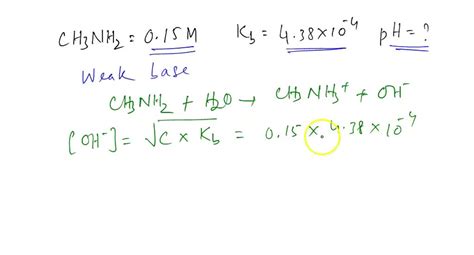 CH3NH2 = 0.15M   Kb = 4.38×10⁻⁴   pH = ?
Weak base
CH3NH2 + H2O → CH3NH3⁺ + OH⁻
[OH⁻] = √C × Kb = 0.15 × 4.38 × 10⁻⁴